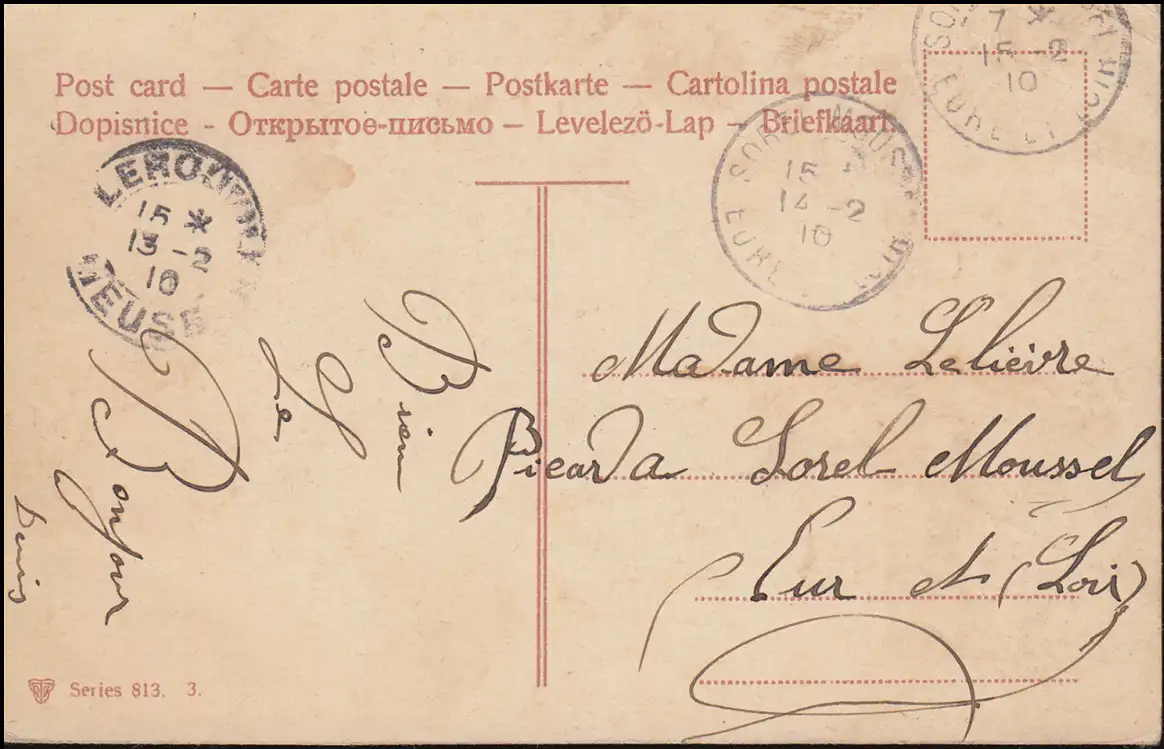 Post card — Carte postale — Postkarte — Cartolina postale
Dopisnice - Открытое-письмо — Levelezö-Lap — Briefkaart.
7 *
15 -2
10
EURE ET
SOREL MOUSSEL
15 *
14 -2
10
EURE
LOIR
LEROUVILLE
15 *
13 -2
10
MEUSE
Madame Lelièvre
Picarda Sorel Moussel
Eur et (Loir)
Bien
Le
Bonjour
Denis
Series 813. 3.